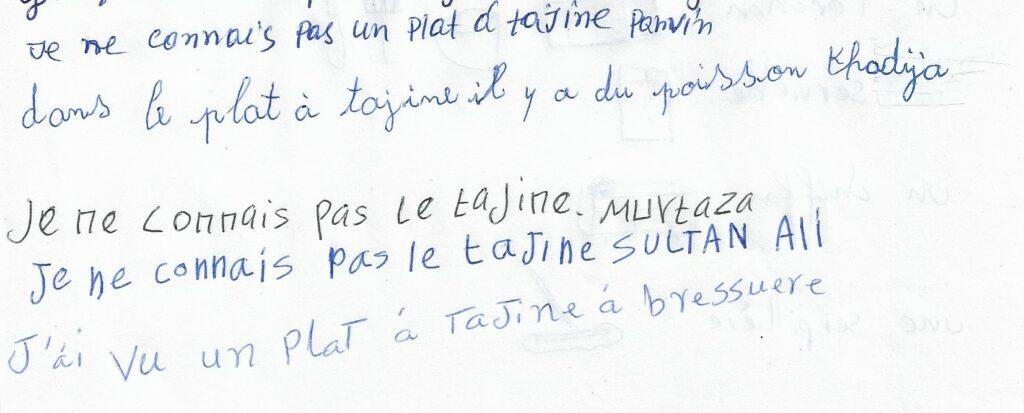 Je ne connais pas un plat d tajine Parvin
dans le plat à tajine il y a du poisson Khadija
Je ne connais pas le tajine. Murtaza
Je ne connais pas le tajine SULTAN Ali
J'ai vu un plat à tajine à bressuere